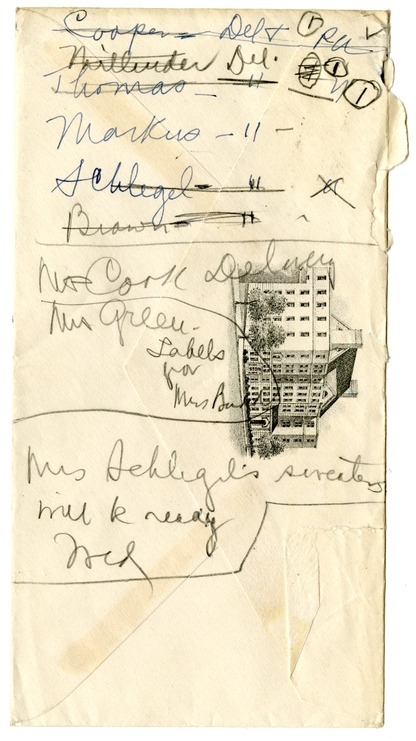 Cooper Del + ① PU ✓
Del. ①
Thomas — " ①
Markus — " —
Schlegel — "
Brown — "
Mrs Cook Delivery
Mrs Green.
Labels
for
Mrs
Mrs Schlegel's sweaters
will be ready
Wed